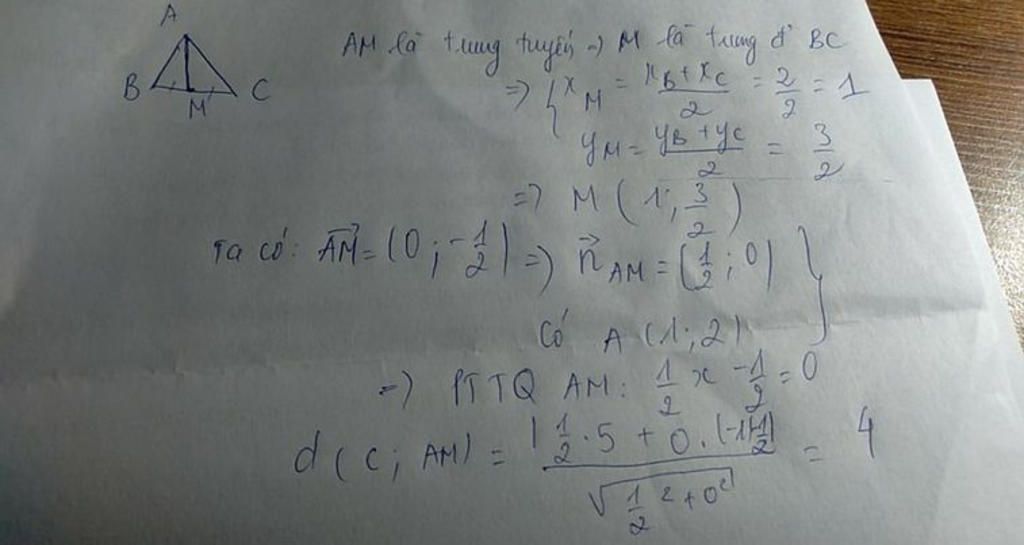 A
B
M
C
AM là trung tuyến => M là trung đ' BC
=> { x_M = (x_B + x_C)/2 = 2/2 = 1
y_M = (y_B + y_C)/2 = 3/2
=> M (1; 3/2)
Ta có: \vec{AM} = (0; -1/2) => \vec{n}_{AM} = (1/2; 0) }
Có A (1; 2)
=> PTTQ AM: 1/2 x - 1/2 = 0
d(C; AM) = |1/2 . 5 + 0 . (-1) - 1/2| / √(1/2 ² + 0²) = 4